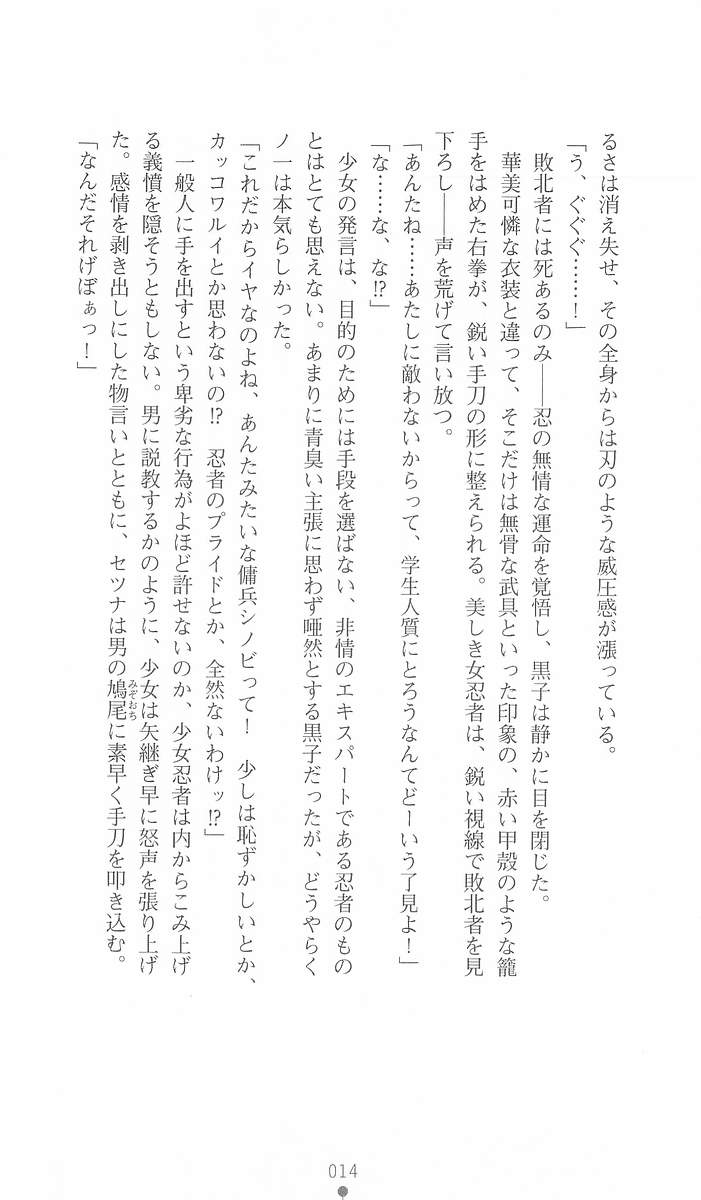 るさは消え失せ、その全身からは刃のような威圧感が漲っている。
「う、ぐぐぐ……！」
　敗北者には死あるのみ――忍の無情な運命を覚悟し、黒子は静かに目を閉じた。
　華美可憐な衣装と違って、そこだけは無骨な武具といった印象の、赤い甲殻のような籠
手をはめた右拳が、鋭い手刀の形に整えられる。美しき女忍者は、鋭い視線で敗北者を見
下ろし――声を荒げて言い放つ。
「あんたね……あたしに敵わないからって、学生人質にとろうなんてどーいう了見よ！」
「な……な、な!?」
　少女の発言は、目的のためには手段を選ばない、非情のエキスパートである忍者のもの
とはとても思えない。あまりに青臭い主張に思わず唖然とする黒子だったが、どうやらく
ノ一は本気らしかった。
「これだからイヤなのよね、あんたみたいな傭兵シノビって！　少しは恥ずかしいとか、
カッコワルイとか思わないの!?　忍者のプライドとか、全然ないわけッ!?」
　一般人に手を出すという卑劣な行為がよほど許せないのか、少女忍者は内からこみ上げ
る義憤を隠そうともしない。男に説教するかのように、少女は矢継ぎ早に怒声を張り上げ
た。感情を剥き出しにした物言いとともに、セツナは男の鳩尾みぞおちに素早く手刀を叩き込む。
「なんだそれげぼぁっ！」
014